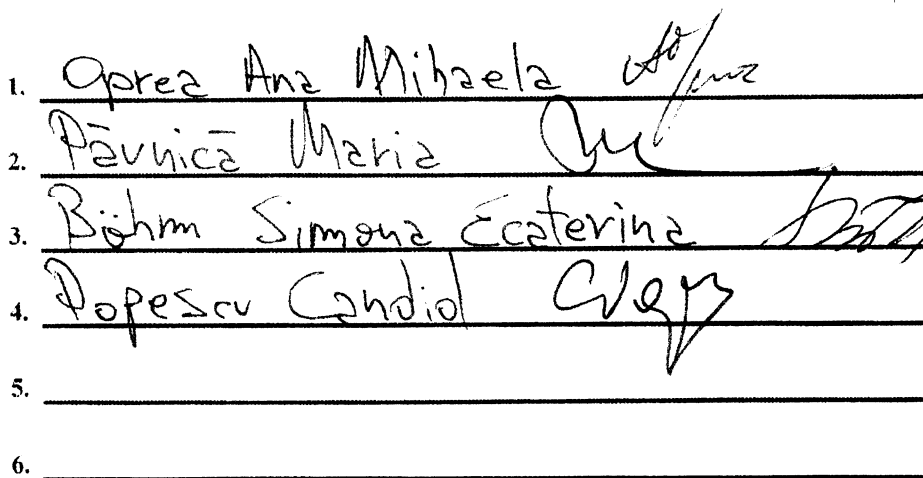 1. Oprea Ana Mihaela
2. Păunică Maria
3. Böhm Simona Ecaterina
4. Popescu Candid
5.
6.